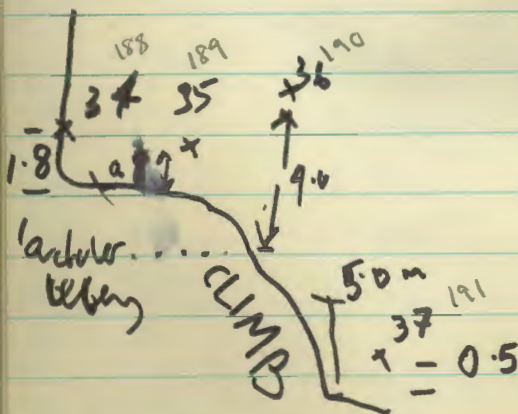 188 189 190
34 35 36
1.8 a 9.0
CLIMB
5.0 m
191
37
0.5